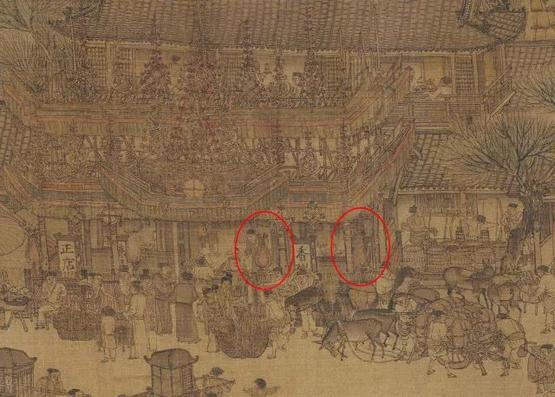 正店
香